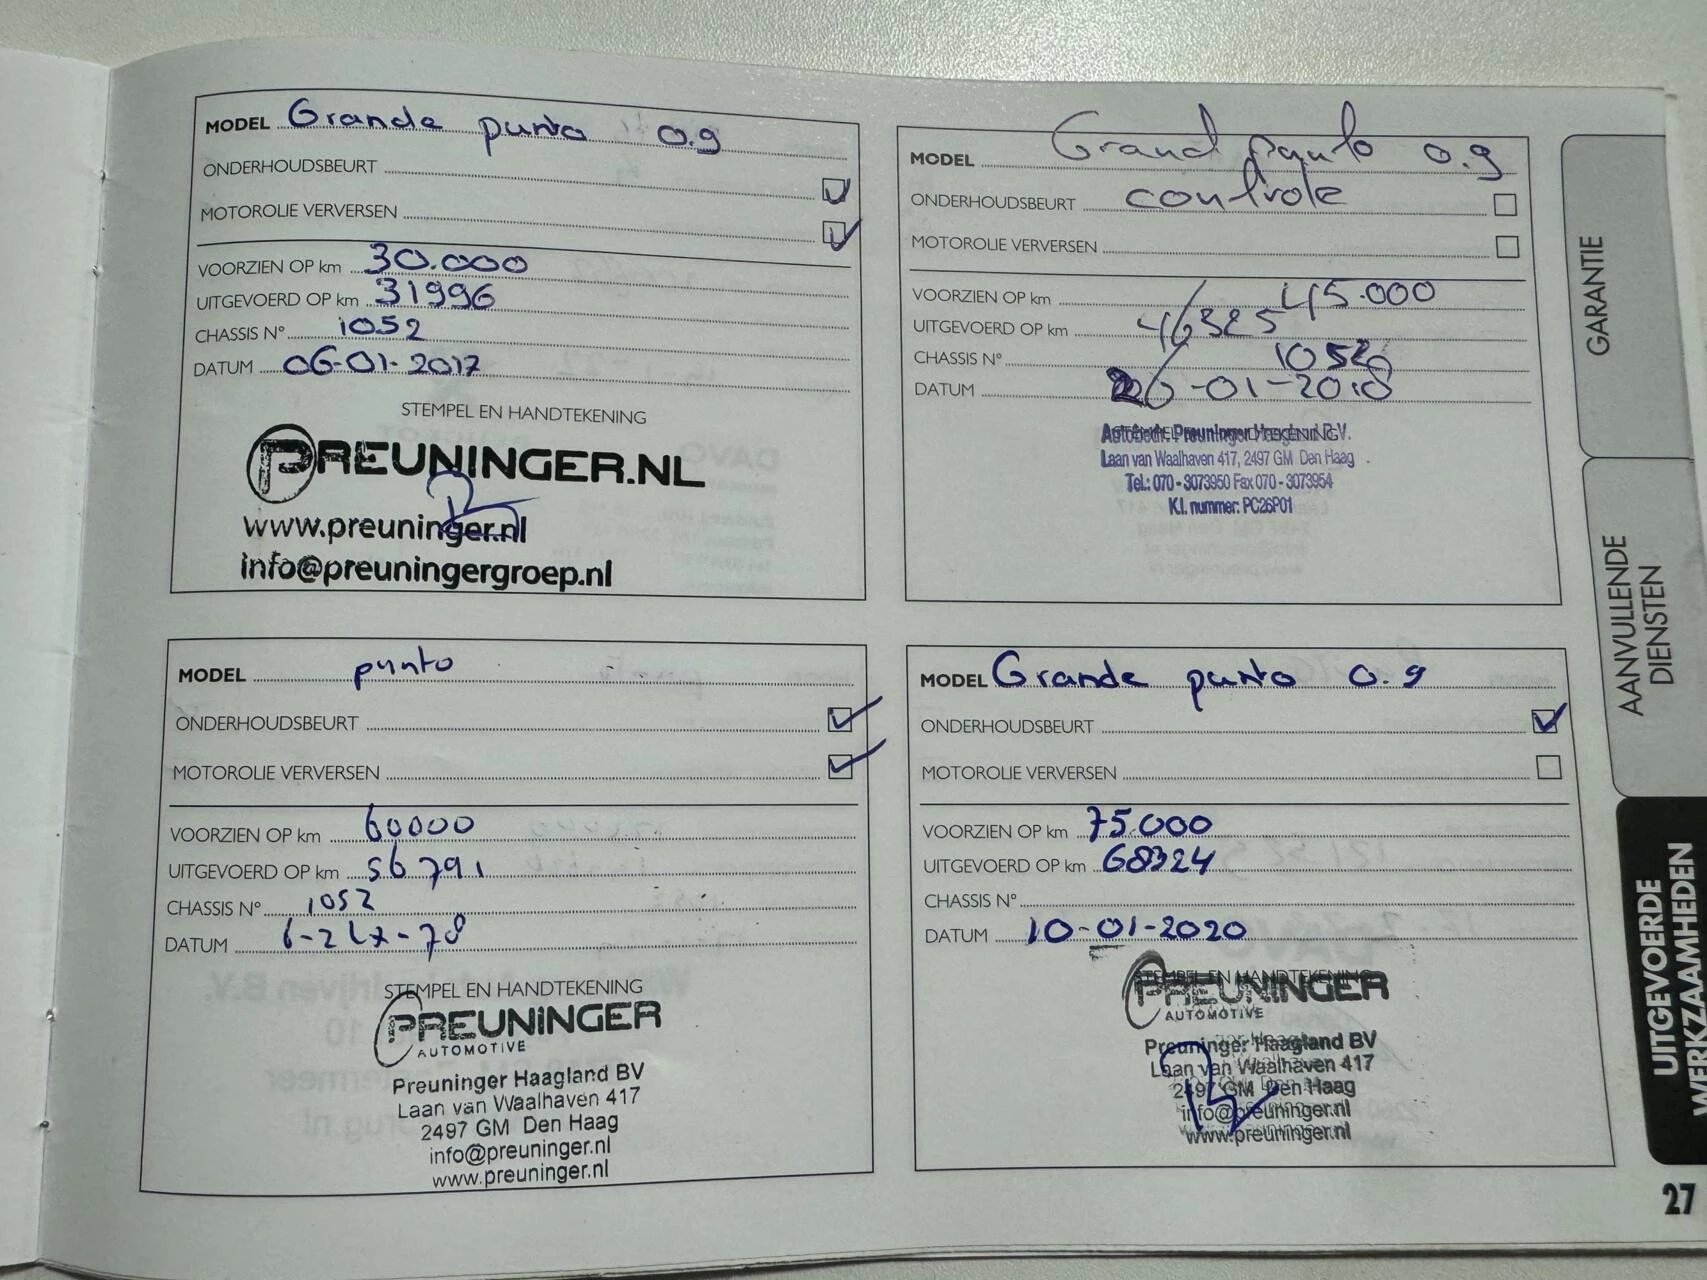 MODEL Grande punto 0.9
ONDERHOUDSBEURT
MOTOROLIE VERVERSEN
VOORZIEN OP km 30.000
UITGEVOERD OP km 31996
CHASSIS N° 1052
DATUM 06-01-2017
STEMPEL EN HANDTEKENING
PREUNINGER.NL
www.preuninger.nl
info@preuningergroep.nl
MODEL Grand punto 0.9
ONDERHOUDSBEURT controle
MOTOROLIE VERVERSEN
VOORZIEN OP km 45.000
UITGEVOERD OP km 46325
CHASSIS N° 1052
DATUM 26-01-2018
STEMPEL EN HANDTEKENING
Autobedr. Preuninger Haagland B.V.
Laan van Waalhaven 417, 2497 GM Den Haag
Tel.: 070 - 3073950 Fax 070 - 3073954
K.I. nummer: PC26P01
MODEL punto
ONDERHOUDSBEURT
MOTOROLIE VERVERSEN
VOORZIEN OP km 60000
UITGEVOERD OP km 56791
CHASSIS N° 1052
DATUM
STEMPEL EN HANDTEKENING
PREUNINGER
AUTOMOTIVE
Preuninger Haagland BV
Laan van Waalhaven 417
2497 GM Den Haag
info@preuninger.nl
www.preuninger.nl
MODEL Grande punto 0.9
ONDERHOUDSBEURT
MOTOROLIE VERVERSEN
VOORZIEN OP km 75.000
UITGEVOERD OP km 68324
CHASSIS N°
DATUM 10-01-2020
STEMPEL EN HANDTEKENING
PREUNINGER
AUTOMOTIVE
Preuninger Haagland BV
Laan van Waalhaven 417
2497 GM Den Haag
info@preuninger.nl
www.preuninger.nl
GARANTIE
AANVULLENDE
DIENSTEN
UITGEVOERDE
WERKZAAMHEDEN
27